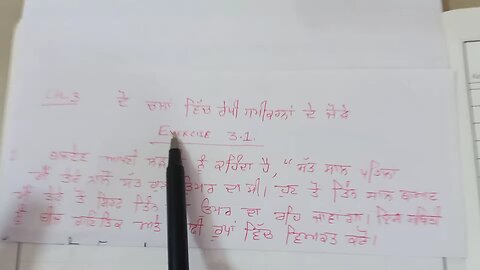 Ch. 3 ਦੋ ਚਲਾਂ ਵਿੱਚ ਰੇਖੀ ਸਮੀਕਰਨਾਂ ਦੇ ਜੋੜੇ
Exercise 3.1.
ਆਪਣੀ ਨੂੰ ਕਹਿੰਦਾ ਹੈ, "ਸੱਤ ਸਾਲ ਪਹਿਲਾਂ
ਮੈਂ ਤੇਰੇ ਨਾਲੋਂ ਸੱਤ ਉਮਰ ਦਾ ਸੀ। ਹੁਣ ਤੋਂ ਤਿੰਨ ਸਾਲ ਬਾਅਦ
ਮੈਂ ਤੇਰੇ ਤੋਂ ਤਿੰਨ ਉਮਰ ਦਾ ਰਹਿ ਜਾਵਾਂਗਾ।
ਨੂੰ ਬੀਜ ਗਣਿਤਿਕ ਅਤੇ ਰੂਪਾਂ ਵਿੱਚ ਵਿਅਕਤ ਕਰੋ।